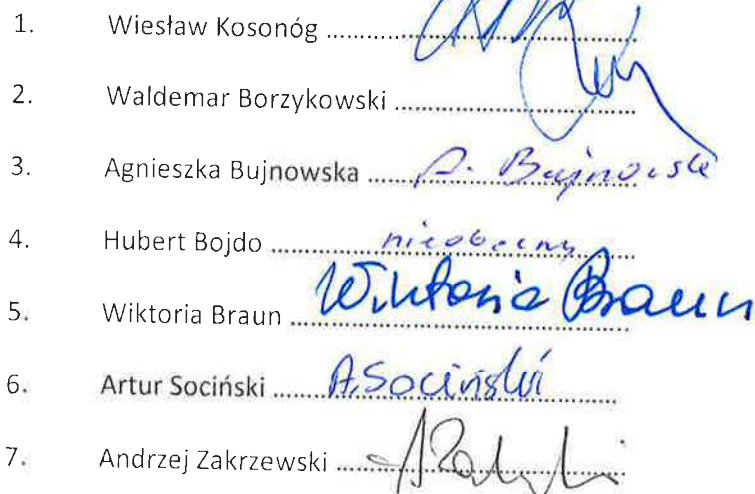 1. Wiesław Kosonóg ....................
2. Waldemar Borzykowski ....................
3. Agnieszka Bujnowska .................... A. Bujnowska
4. Hubert Bojdo .................... nieobecny
5. Wiktoria Braun .................... Wiktoria Braun
6. Artur Sociński .................... A. Sociński
7. Andrzej Zakrzewski ....................